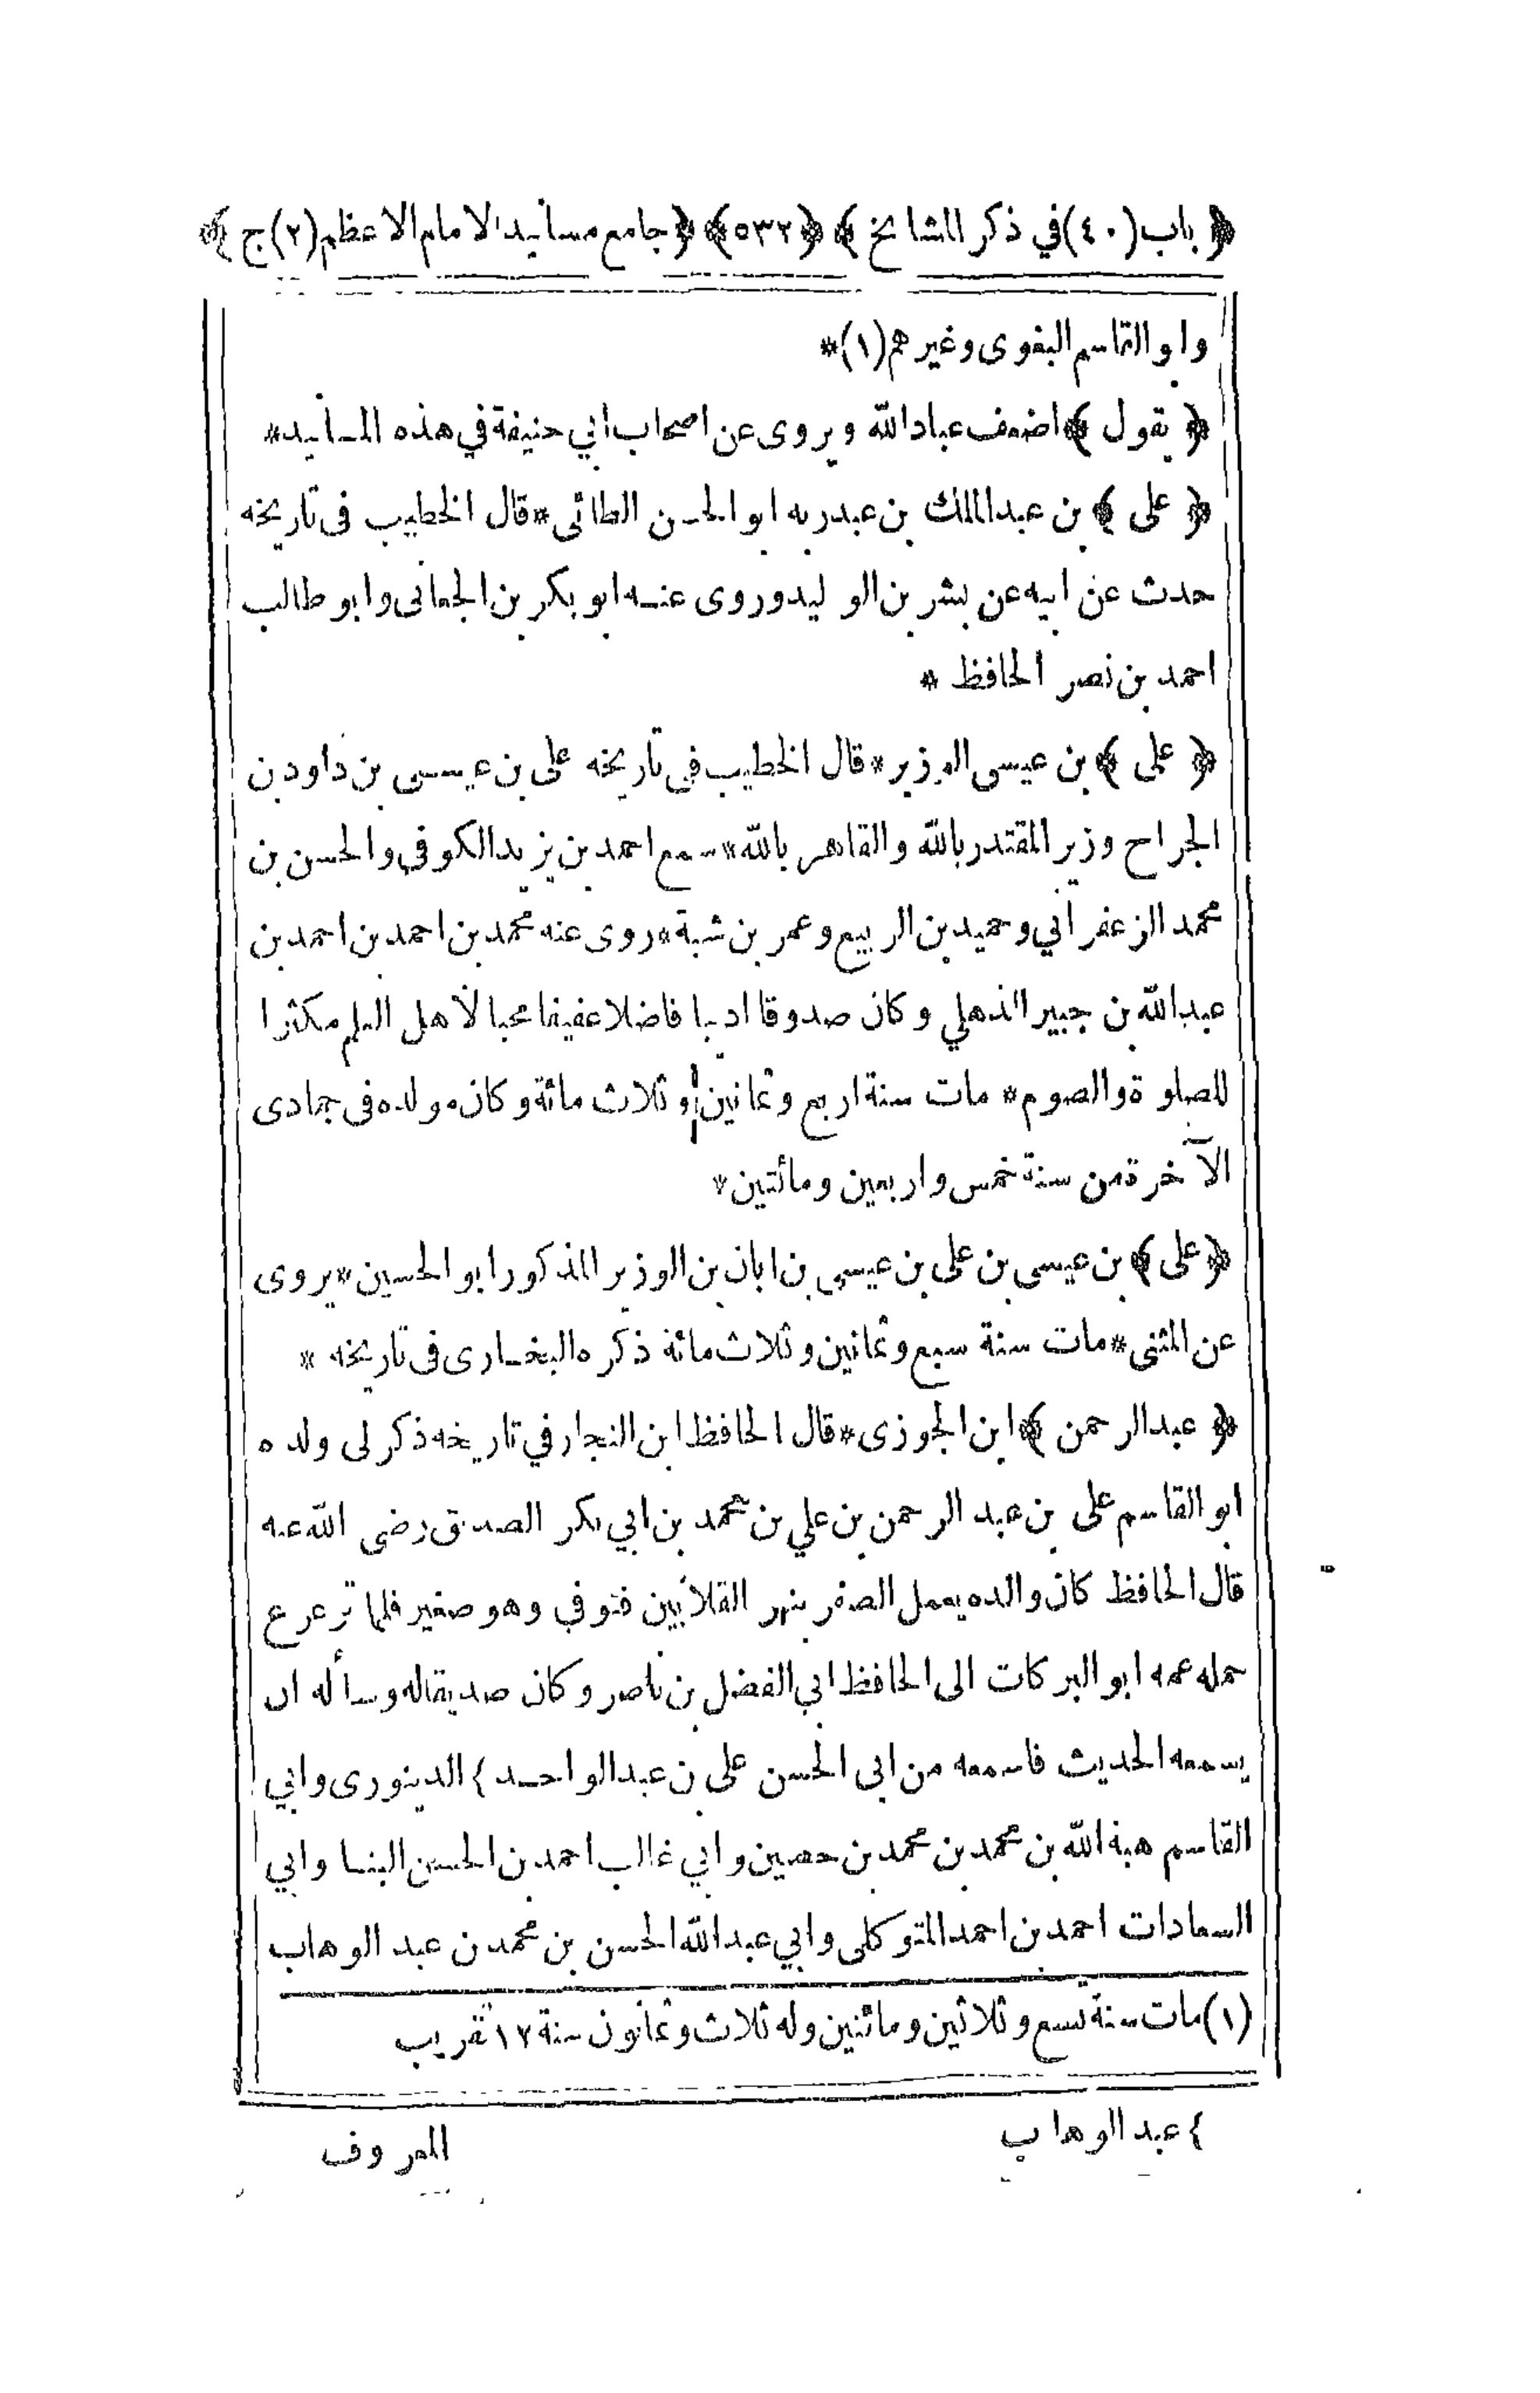 ﴿ باب (٤٠) في ذكر المشايخ ﴾ ﴿ ٥٣٢ ﴾ ﴿ جامع مسانيد الامام الاعظم (٢) ج ﴾
وابو القاسم البغوى وغيرهم (١) *
﴿ يقول ﴾ اضعف عباد الله ويروى عن اصحاب ابي حنيفة في هذه المسانيد *
﴿ على ﴾ بن عبد الملك بن عبدربه ابو الحسن الطائى * قال الخطيب فى تاريخه
حدث عن ابيه عن بشر بن الوليد وروى عنه ابو بكر بن الجعانى وابو طالب
احمد بن نصر الحافظ *
﴿ على ﴾ بن عيسى الوزير * قال الخطيب في تاريخه على بن عيسى بن داود بن
الجراح وزير المقتدر بالله والقاهر بالله * سمع احمد بن يزيد الكوفي والحسن بن
محمد الزعفراني وحميد بن الربيع وعمر بن شبة * روى عنه محمد بن احمد بن احمد بن
عبد الله بن جبير الذهلي وكان صدوقا اديبا فاضلا عفيفا محبا لأهل العلم مكثرا
للصلوة والصوم * مات سنة اربع وثمانين وثلاث مائة وكان مولده فى جمادى
الآخرة من سنة خمس واربعين ومائتين *
﴿ على ﴾ بن عيسى بن على بن عيسى بن ابان بن الوزير المذكور ابو الحسين * يروى
عن المثنى * مات سنة سبع وثمانين وثلاث مائة ذكره البخارى فى تاريخه *
﴿ عبد الرحمن ﴾ ابن الجوزى * قال الحافظ ابن النجار في تاريخه ذكر لى ولده
ابو القاسم على بن عبد الرحمن بن علي بن محمد بن ابي بكر الصديق رضى الله عنه
قال الحافظ كان والده يعمل الصفر بنهر القلائين فتوفي وهو صغير فلما ترعرع
حمله عمه ابو البركات الى الحافظ ابي الفضل بن ناصر وكان صديقا له وسأله ان
يسمعه الحديث فاسمعه من ابى الحسن على بن عبد الواحد ٤ الدينورى وابي
القاسم هبة الله بن محمد بن محمد بن حصين وابي غالب احمد بن الحسن البنا وابي
السعادات احمد بن احمد المتوكلى وابي عبد الله الحسن بن محمد بن عبد الوهاب
(١) مات سنة تسع وثلاثين ومائتين وله ثلاث وثمانون سنة ١٢ تقريب
٤ عبد الوهاب
المعروف